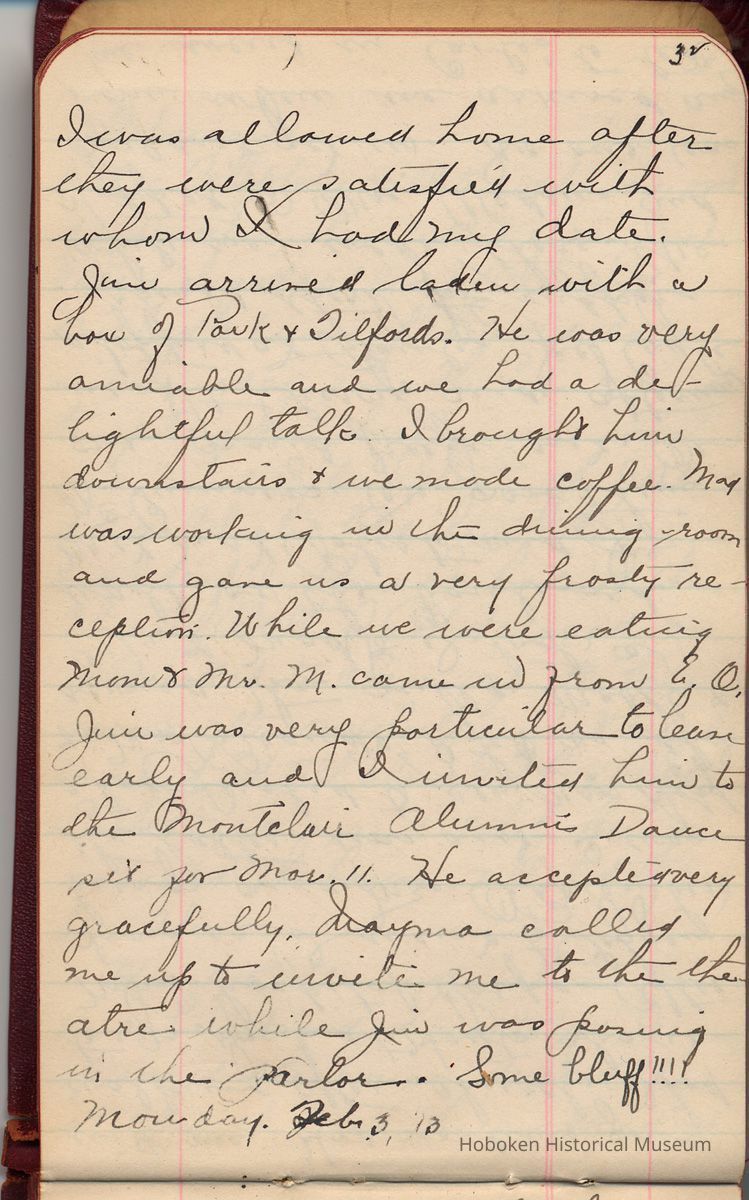 32
I was allowed home after
they were satisfied with
whom I had my date.
Jim arrived laden with a
box of Park & Tilfords. He was very
amiable and we had a de-
lightful talk. I brought him
downstairs & we made coffee. May
was working in the dining-room
and gave us a very frosty re-
ception. While we were eating
Mom & Mr. M. came in from E. O.
Jim was very particular to leave
early and I invited him to
the Montclair Alumnis Dance
set for Mar. 11. He accepted very
gracefully. Mayma called
me up to invite me to the the-
atre while Jim was posing
in the Parlor. Some bluff!!!!
Monday. Feb. 3, 13
Hoboken Historical Museum